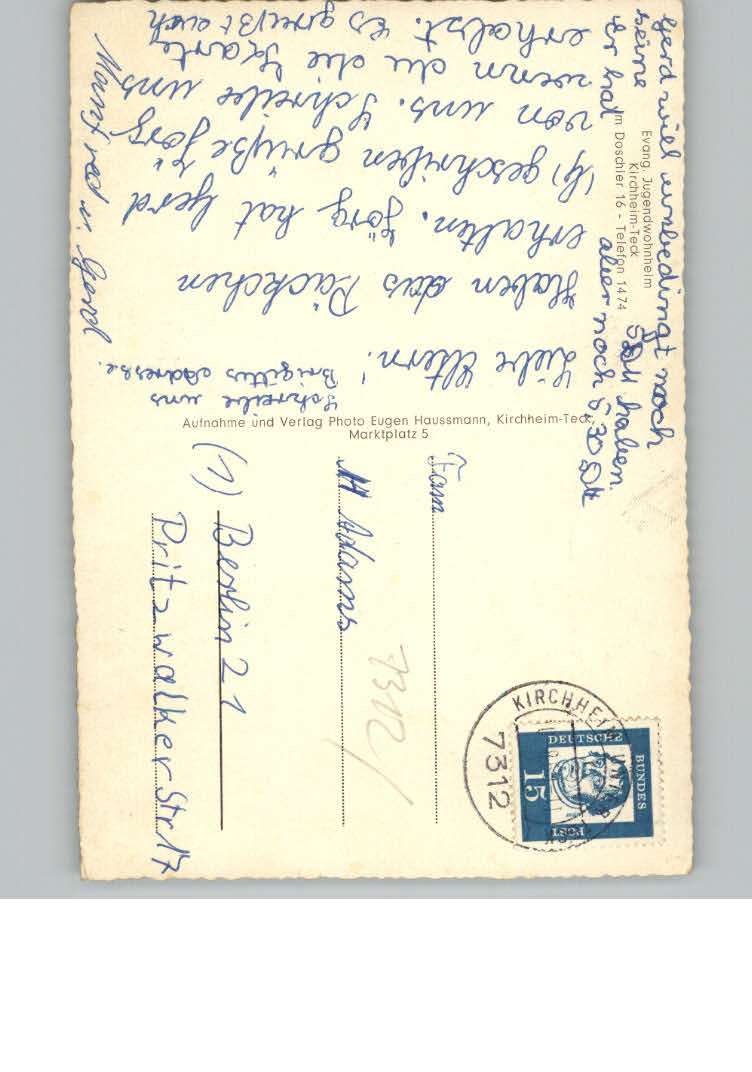 Liebe Eltern!
Haben das Päckchen
erhalten. Jörg hat Gerd
geschriben grüße Jörg
von uns. Schreibe uns
wenn du die Karte
erhalst. Es grüßt euch
Manfred u. Gerd
Schreibe uns
Brigittes Adresse.
Gerd will unbedingt noch
seine 5 DM haben.
Er hat aber noch 5,30 DM
Evang. Jugendwohnheim
Kirchheim-Teck
m Doschler 16 - Telefon 14 74
Aufnahme und Verlag Photo Eugen Haussmann, Kirchheim-Teck,
Marktplatz 5
Fam
H Adams
(1) Berlin 21
Pritzwalker Str 17
7312
KIRCHHEIM UNTER TECK
7312
DEUTSCHE
BUNDES
POST
15